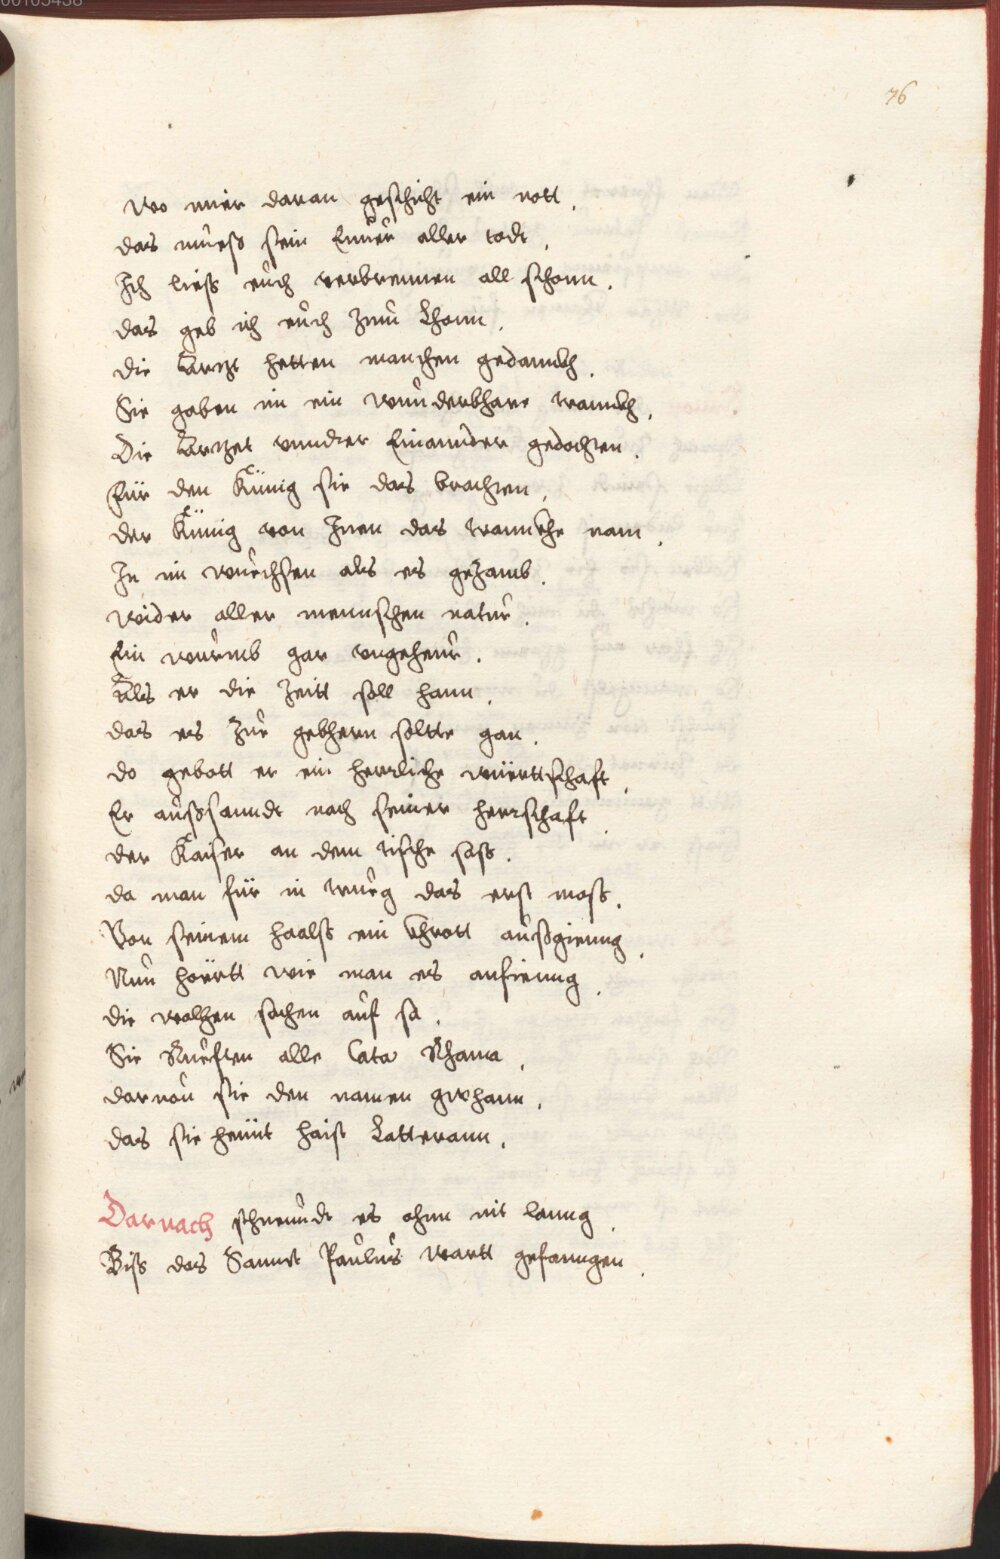 00105438
76
wo mier daran geschicht ein nott.
das mueß sein Eŭŭer aller todt.
Ich ließ eŭch verbrennen all schonn.
das geb ich eŭch zŭŭ Lhonn.
die Ärtzt hetten manchen gedannckh.
Sie gaben im ein wŭnderbhare tranckh.
Die Ärtzet vnnder Einannder gedachten.
für den Künig sie das brachten.
der Künig von Inen das tranckhe nam.
In im wŭechsen als es gezamb.
wider aller mennschen natŭr.
Ein wŭrmb gar vngeheŭr.
Als er die Zeitt soll hann.
das es Zŭr gebhern soltte gan.
do gebott er ein herrliche württschaft.
Er aŭßsanndt nach seiner herrschaft.
der Kaiser an dem tische saß.
da man für in trŭeg das erst moß.
Von seinem haalß ein khrott aŭßgienng.
Nŭn hörtt wie man es anfienng.
die walhen sachen aŭf sa.
Sie Rŭeften alle Lata Rhana.
darvon sie den namen gwhann.
das sie heünt haist Latterann.
Darnach schwŭndt es ohnn nit lanng.
Biß das Sannct Paŭlŭs wartt gefanngen.